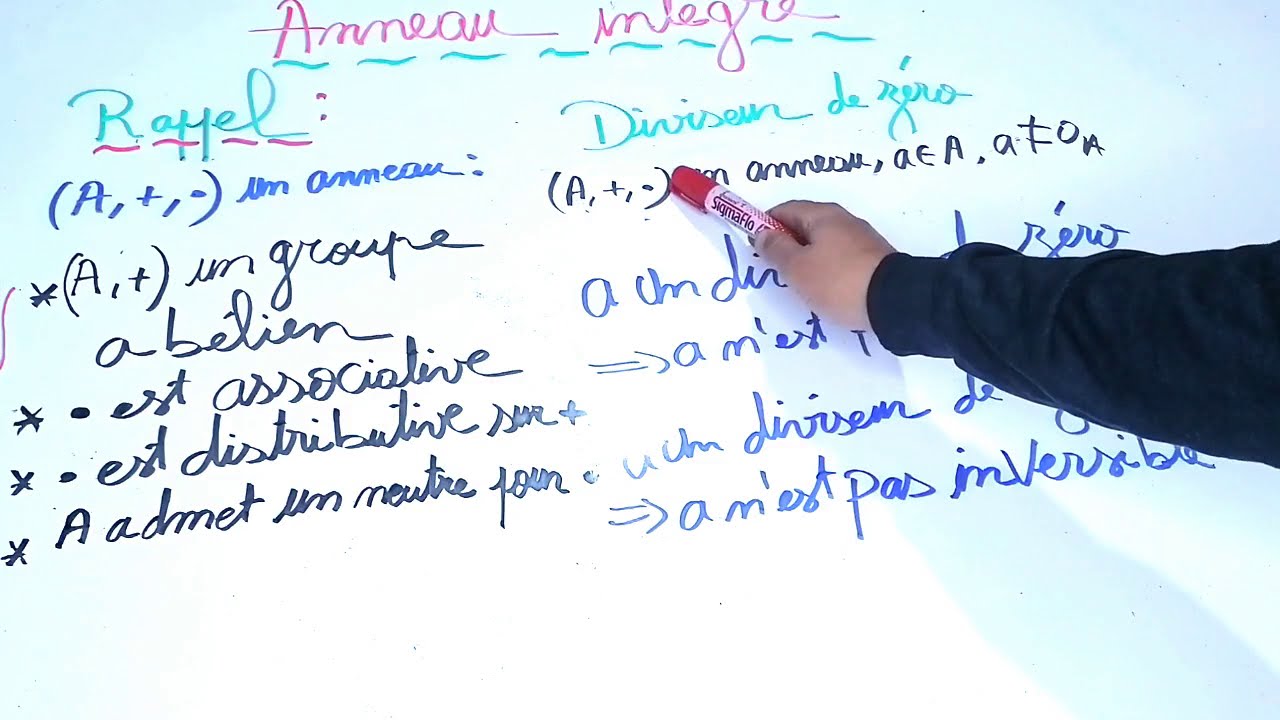 Anneau intègre
Rappel :
(A, +, •) un anneau :
* (A, +) un groupe
abélien
* • est associative
* • est distributive sur +
* A admet un neutre pour •
Diviseur de zéro
(A, +, •) un anneau, a ∈ A, a ≠ 0A
a un div zéro
⟹ a n'est
un diviseur de
⟹ a n'est pas inversible
SigmaFlo